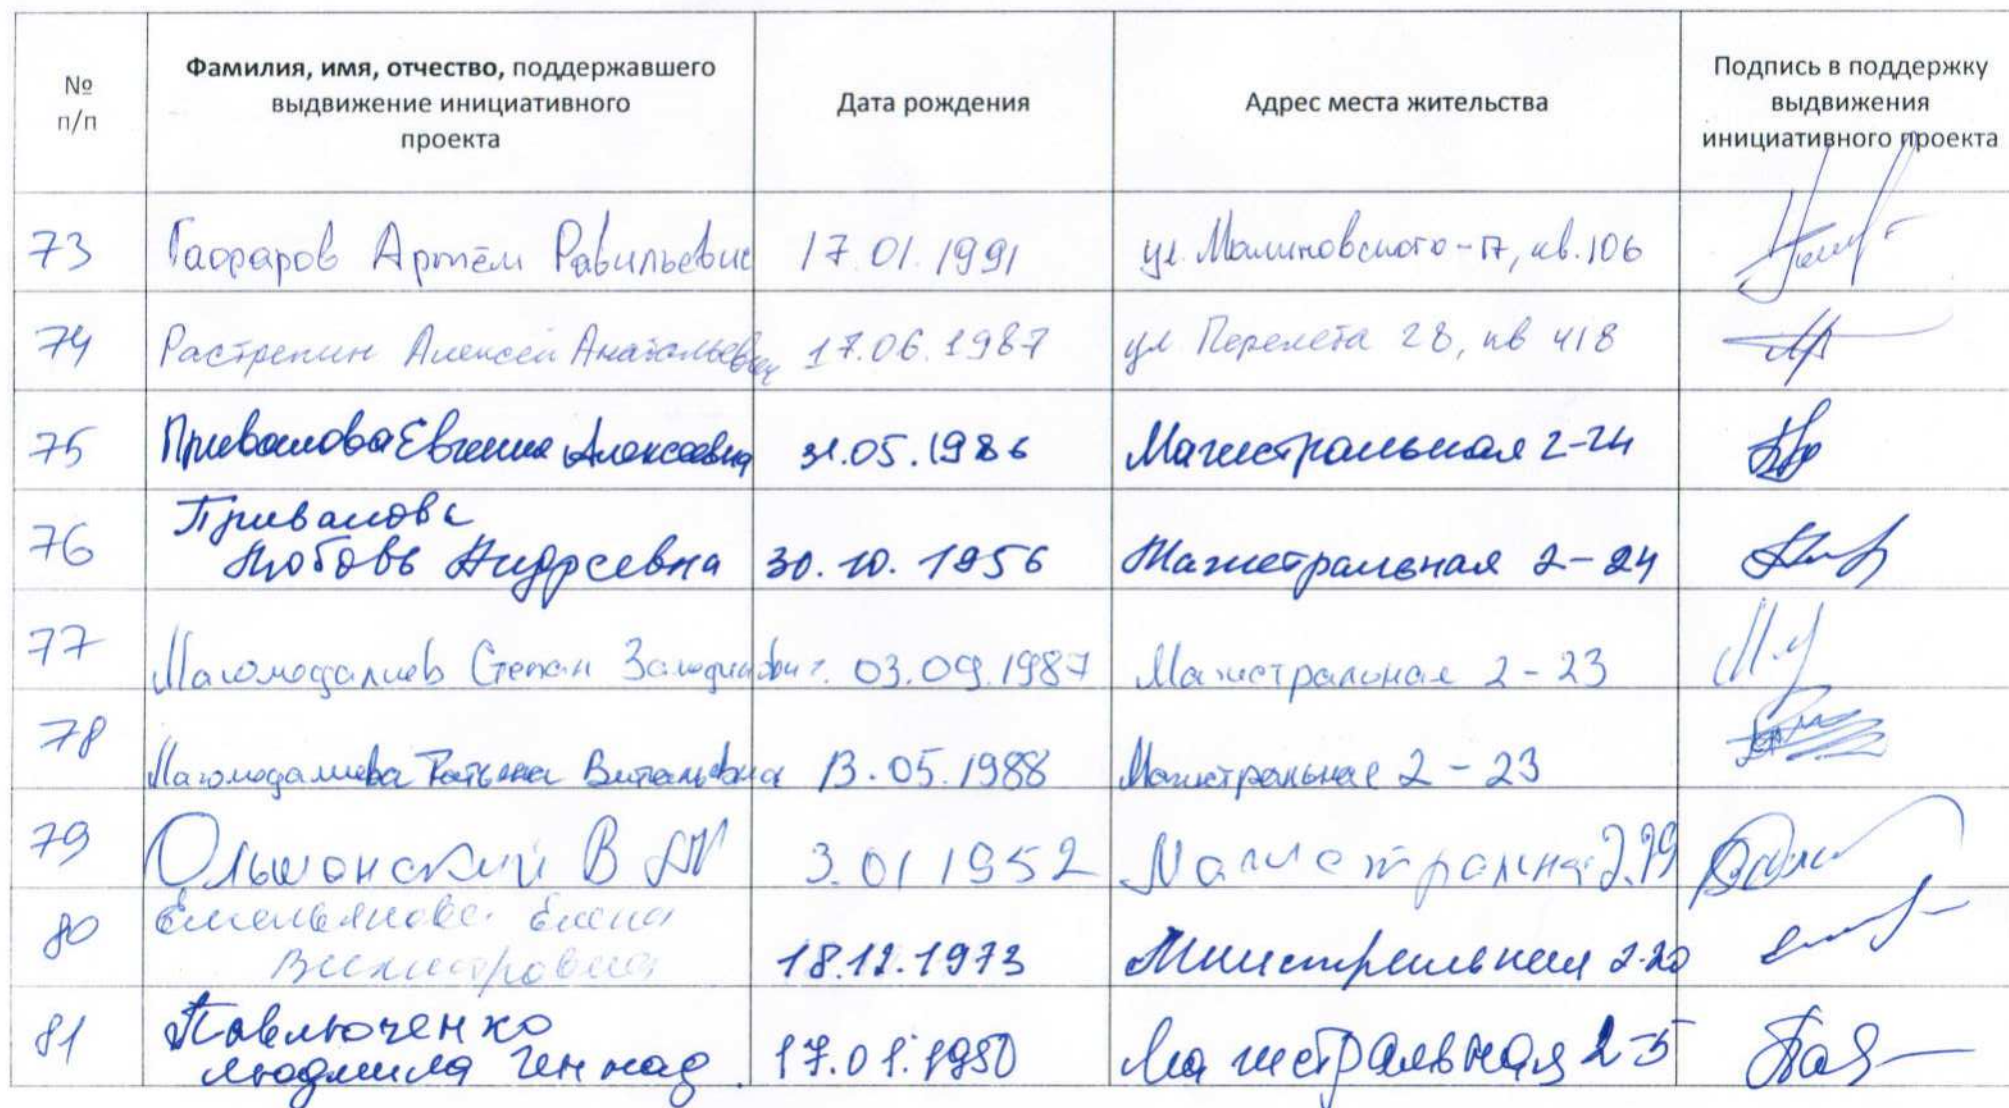 №
п/п
Фамилия, имя, отчество, поддержавшего
выдвижение инициативного
проекта
Дата рождения
Адрес места жительства
Подпись в поддержку
выдвижения
инициативного проекта
73 Гаффаров Артём Равильевич 17.01.1991 ул. Малиновского-17, кв.106
74 Растрепин Алексей Анатольевич 17.06.1987 ул Перелета 28, кв 418
75 Привалова Евгения Алексеевна 31.05.1986 Магистральная 2-24
76 Привалова
Любовь Андреевна 30.10.1956 Магистральная 2-24
77 Магомедалиев Степан 03.09.1987 Магистральная 2-23
78 Магомедалиева Татьяна Витальевна 13.05.1988 Магистральная 2-23
79 Ольшонский В 3.01 1952
80 Емельянова Елена
18.12.1973 2-20
81 Павлюченко
Людмила Геннад. 17.01.1950 Магистральная 2-5